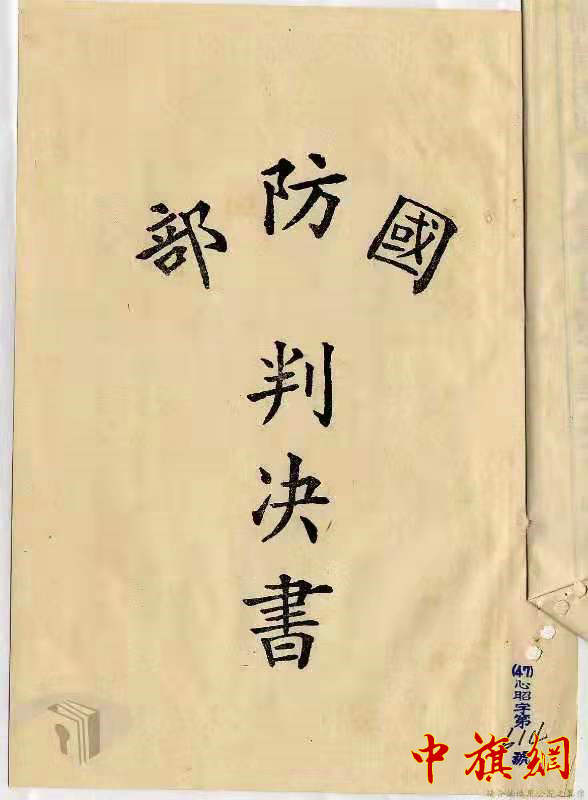 國防部
判决書
(47)心昭字第114號
中旗網